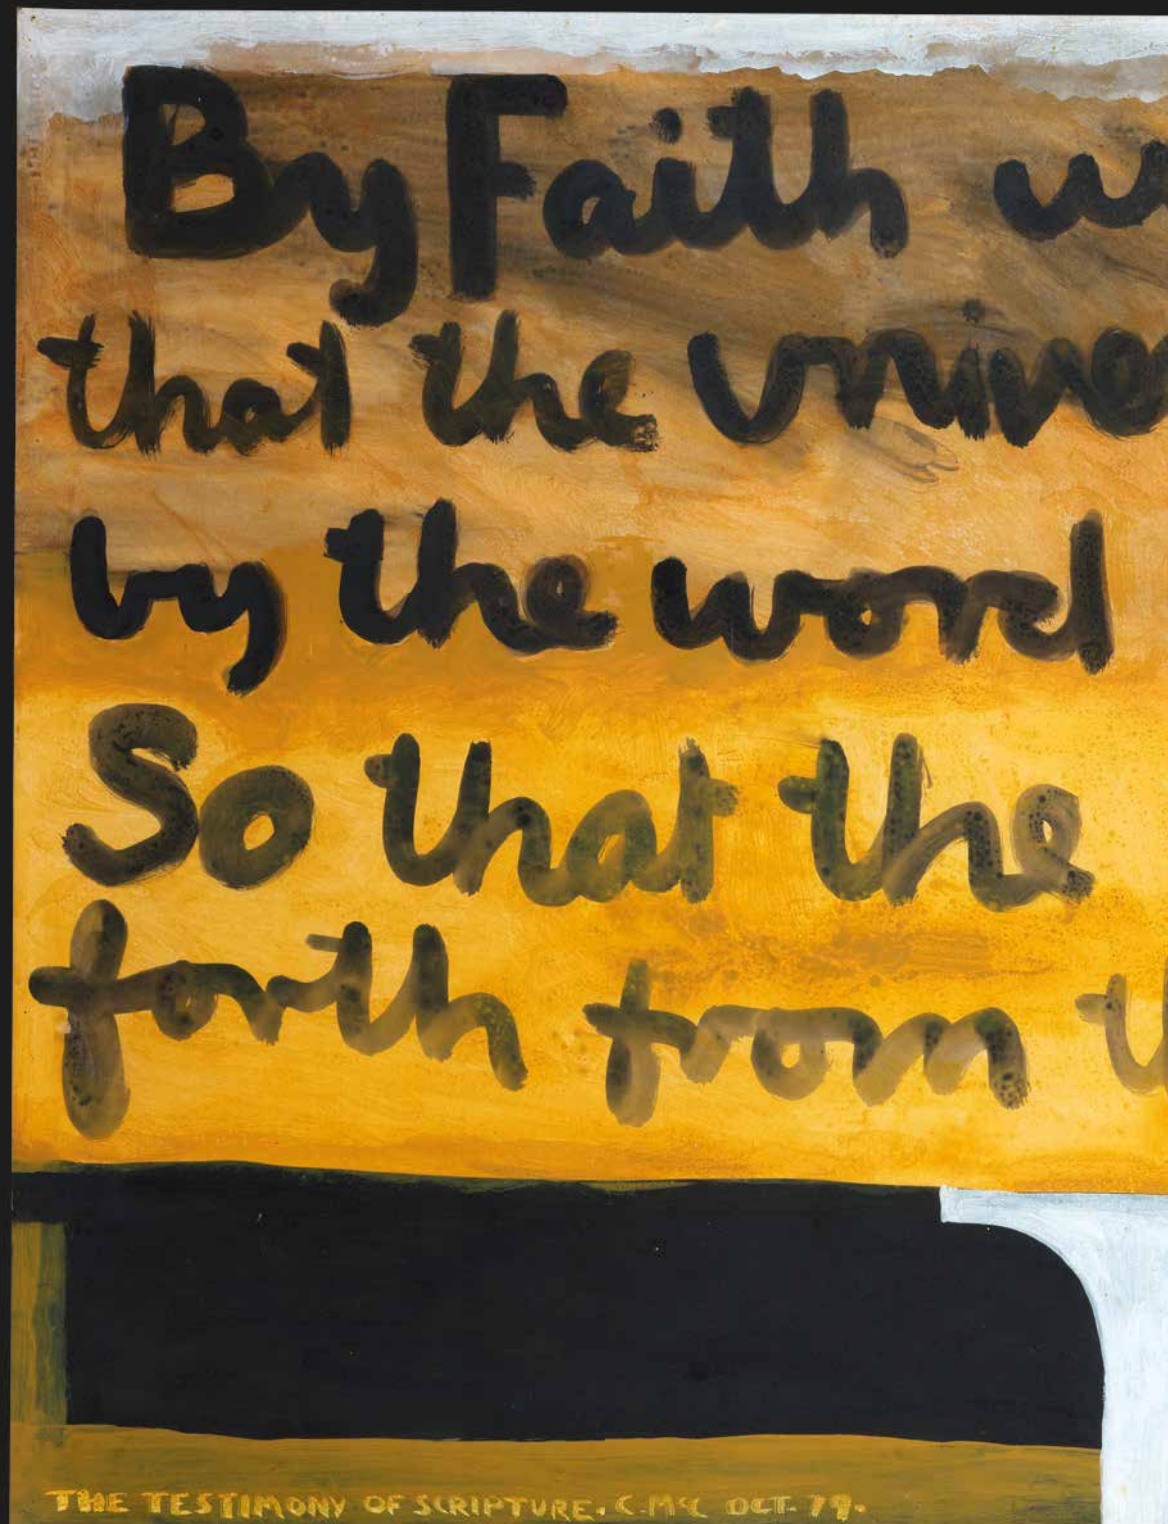 By Faith
that the
by the word
So that the
forth from
THE TESTIMONY OF SCRIPTURE. C. McC OCT. 79.